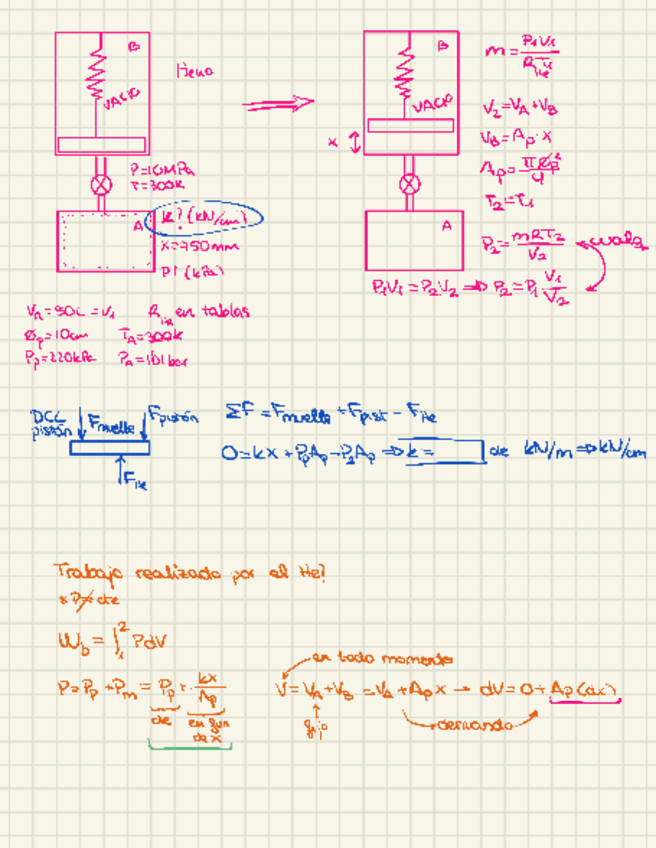 B
Heno
VACIO
P=10MPa
T=300K
A
k? (kN/cm)
x=950mm
P1 (kPa)
B
VACIO
x
A
m = P₁V₁ / R_He T₁
V₂=VA+VB
VB=Ap·x
Ap= πØp² / 4
T₂=T₁
P₂= mRT₂ / V₂
P₁V₁=P₂V₂ ⇒ P₂=P₁ V₁ / V₂
VA=50L=V₁ R_He en tablas
Øp=10cm TA=300K
Pp=220kPa PA=101bar
DCL
pistón
Fmuelle
Fpistón
FHe
ΣF = Fmuelle + Fpist - FHe
0=kx+PpAp-P₂Ap ⇒ k= de kN/m ⇒ kN/cm
Trabajo realizado por el He?
* P≠cte
Wb = ∫₁² PdV
P=Pp+Pm = Pp + kx / Ap
cte
en fun
de x
en todo momento
V=VA+VB=VA+Ap x → dV=0+Ap(dx)
fijo
derivando